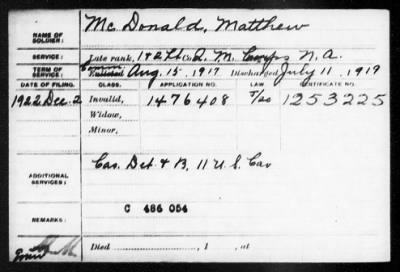 NAME OF SOLDIER: McDonald, Matthew
SERVICE: Late rank, 1st Lt Co. Q. M. Corps N. A.
TERM OF SERVICE: Enlisted Aug. 15, 1917 Discharged July 11, 1919
DATE OF FILING. CLASS. APPLICATION NO. LAW CERTIFICATE NO.
1922 Dec. 2 Invalid, 1476408 1253225
Widow,
Minor,
ADDITIONAL SERVICES: Cas. Det. & B, 11 U. S. Cav
C 486 054
REMARKS:
Died , 1 , at